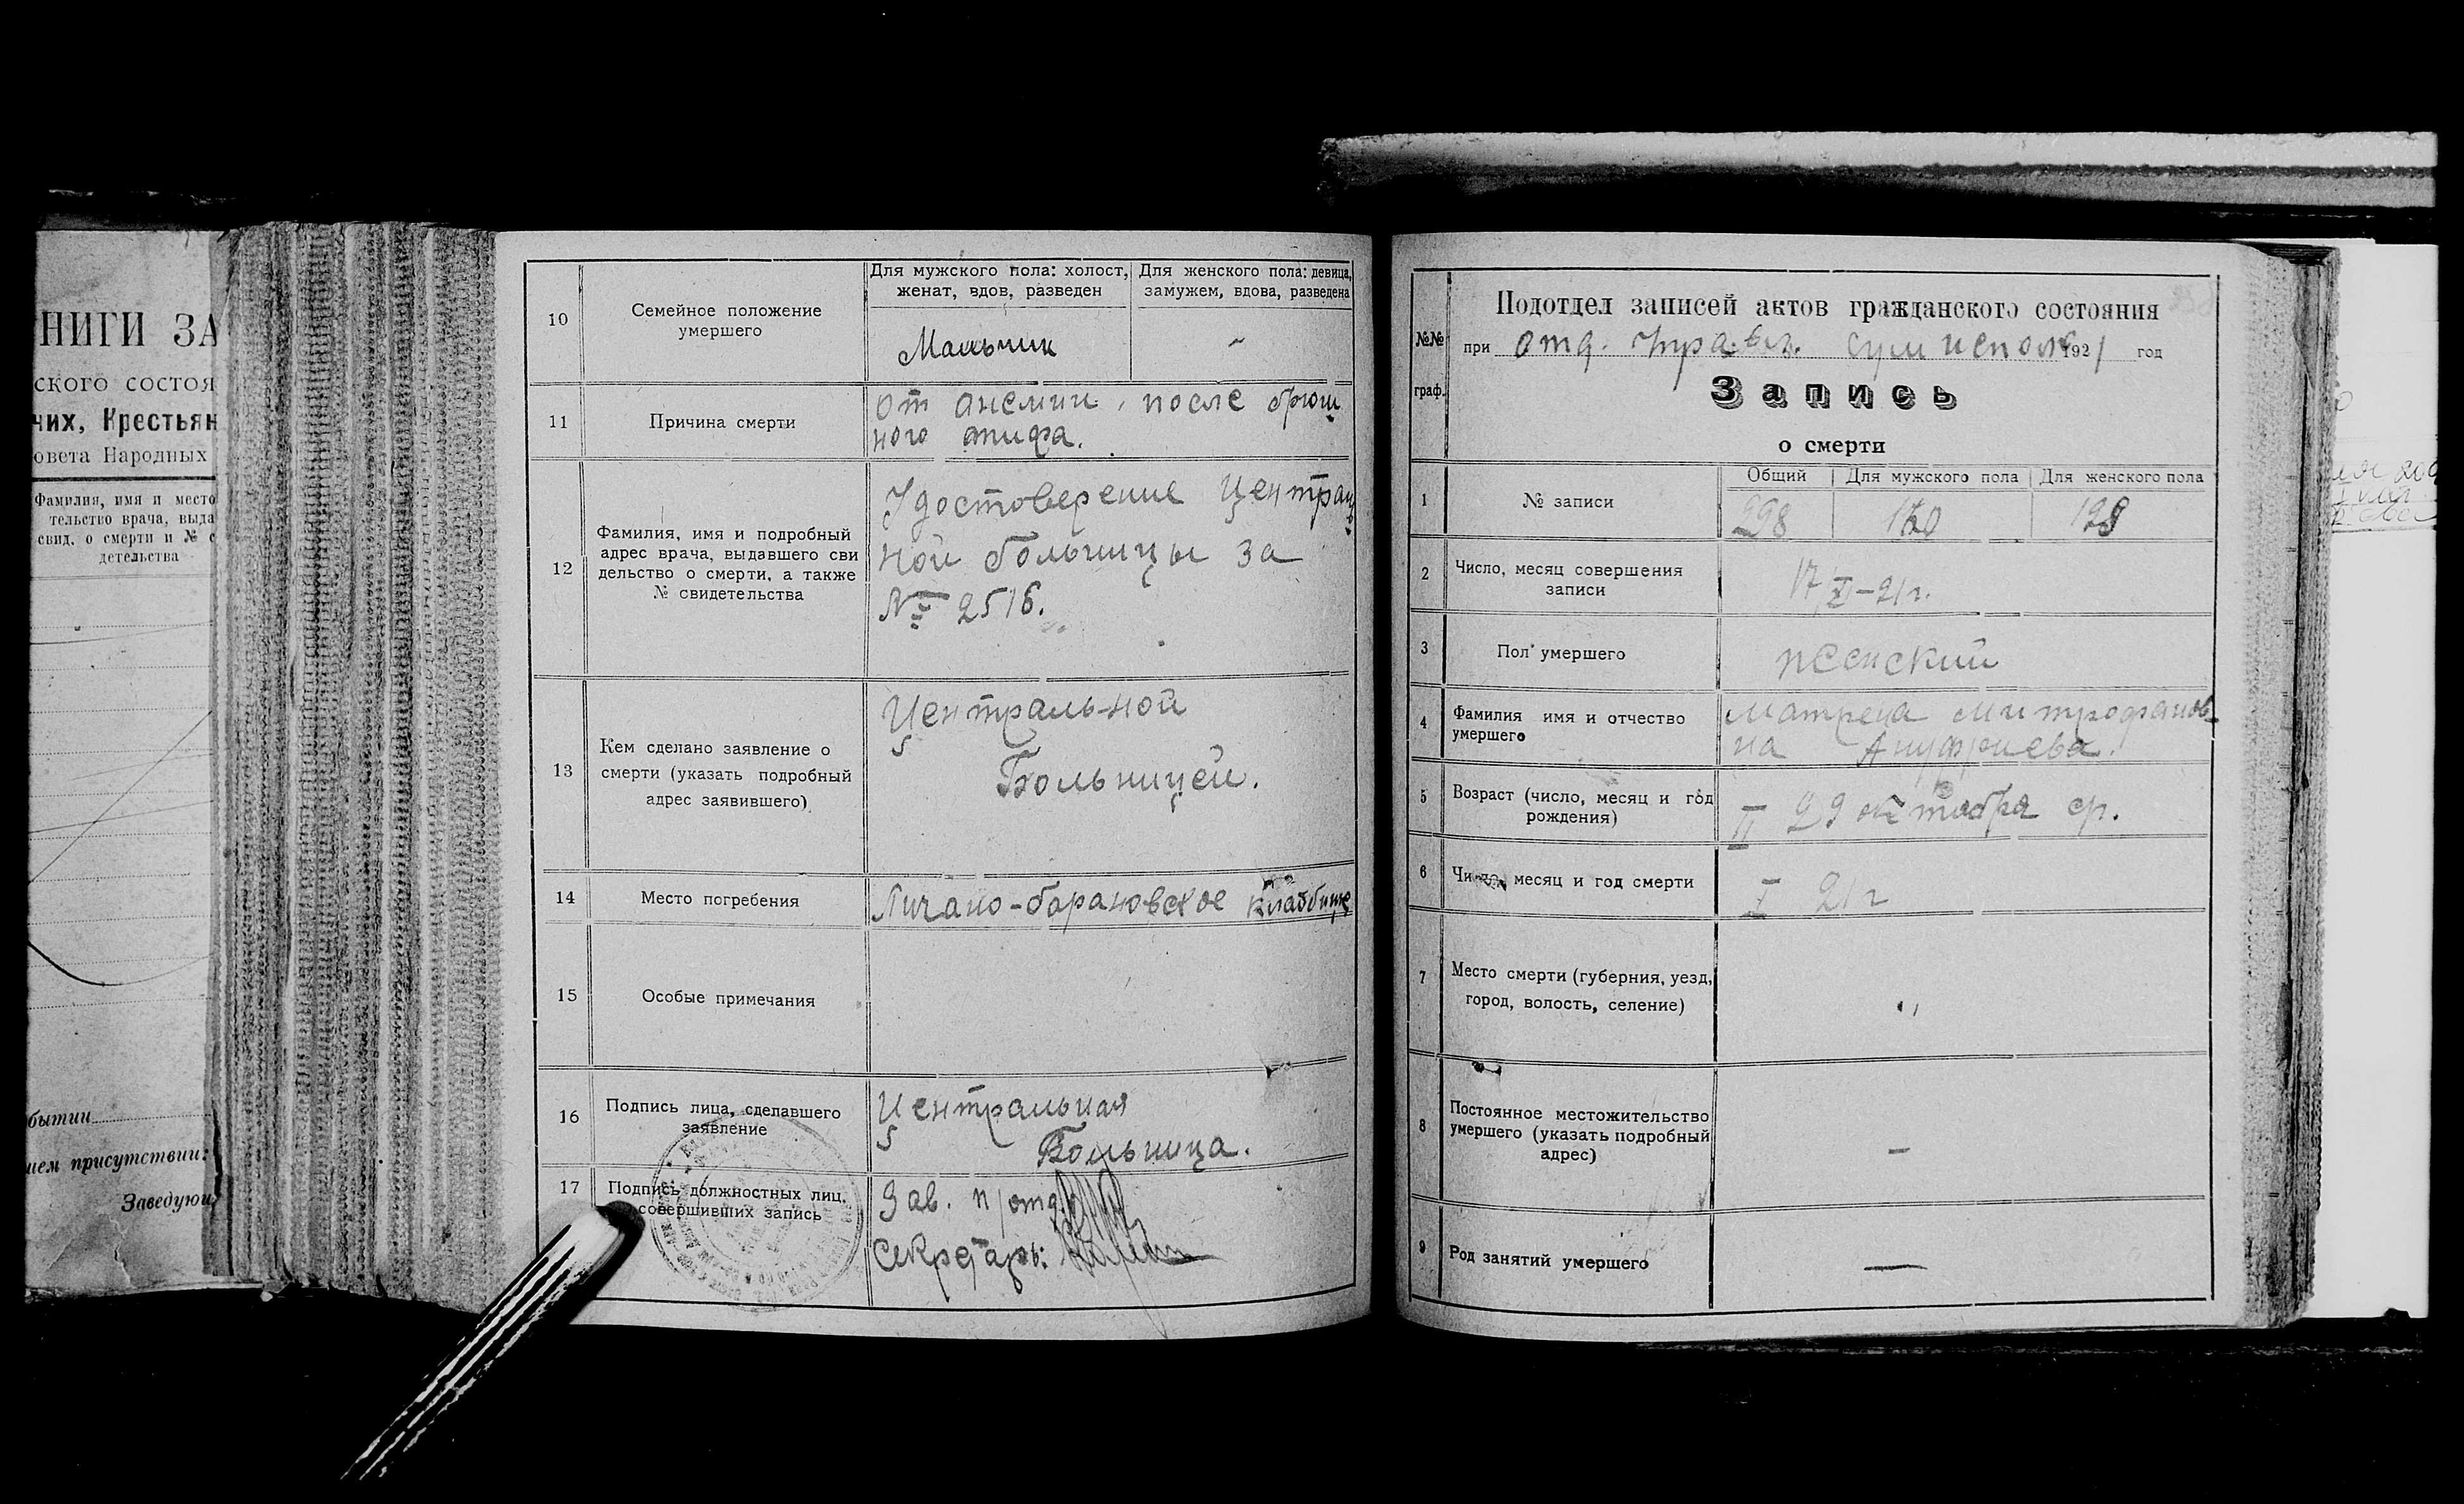 НИГИ ЗА
ского состоя
чих, Крестьян
овета Народных
Фамилия, имя и место
тельство врача, выда
свид. о смерти и № с
детельства
бытии
ием присутствии:
Заведующ
10
Семейное положение
умершего
Для мужского пола: холост,
женат, вдов, разведен
Для женского пола: девица,
замужем, вдова, разведена
Мальчик
-
11
Причина смерти
От анемии, после брюш
ного тифа.
12
Фамилия, имя и подробный
адрес врача, выдавшего сви
дельство о смерти, а также
№ свидетельства
Удостоверение Централь
ной больницы за
№ 2516.
13
Кем сделано заявление о
смерти (указать подробный
адрес заявившего)
Центральной
Больницей.
14
Место погребения
кладбище
15
Особые примечания
16
Подпись лица, сделавшего
заявление
Центральная
Больница.
17
Подпись должностных лиц,
совершивших запись
Зав. п/отд.
Секретарь:
№№
граф.
Подотдел записей актов гражданского состояния
при отд. Управл. 1921 год
Запись
о смерти
1
№ записи
Общий
Для мужского пола
Для женского пола
298
128
2
Число, месяц совершения
записи
17/I-21г.
3
Пол умершего
женский
4
Фамилия имя и отчество
умершего
Матрена Митрофанов-
на Ануфриева.
5
Возраст (число, месяц и год
рождения)
29 октября ср.
6
Число, месяц и год смерти
I 21г
7
Место смерти (губерния, уезд,
город, волость, селение)
"
8
Постоянное местожительство
умершего (указать подробный
адрес)
-
9
Род занятий умершего
—